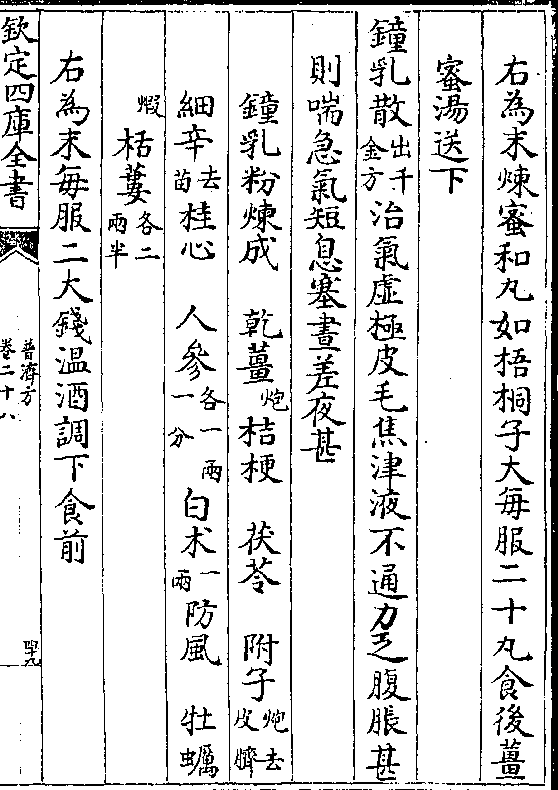 右為末煉蜜和丸如梧桐子大每服二十丸食後薑
蜜湯送下
鐘乳散出千金方治氣虛極皮毛焦津液不通力乏腹脹甚
則喘急氣短息塞晝差夜甚
鐘乳粉煉成 乾薑炮桔梗 茯苓 附子炮去皮臍
細辛去苗桂心 人參各一兩一分白术一兩防風 牡蠣
煆栝蔞各二兩半
右為末每服二大錢温酒調下食前
欽定四庫全書
普濟方
卷二十八
四十九